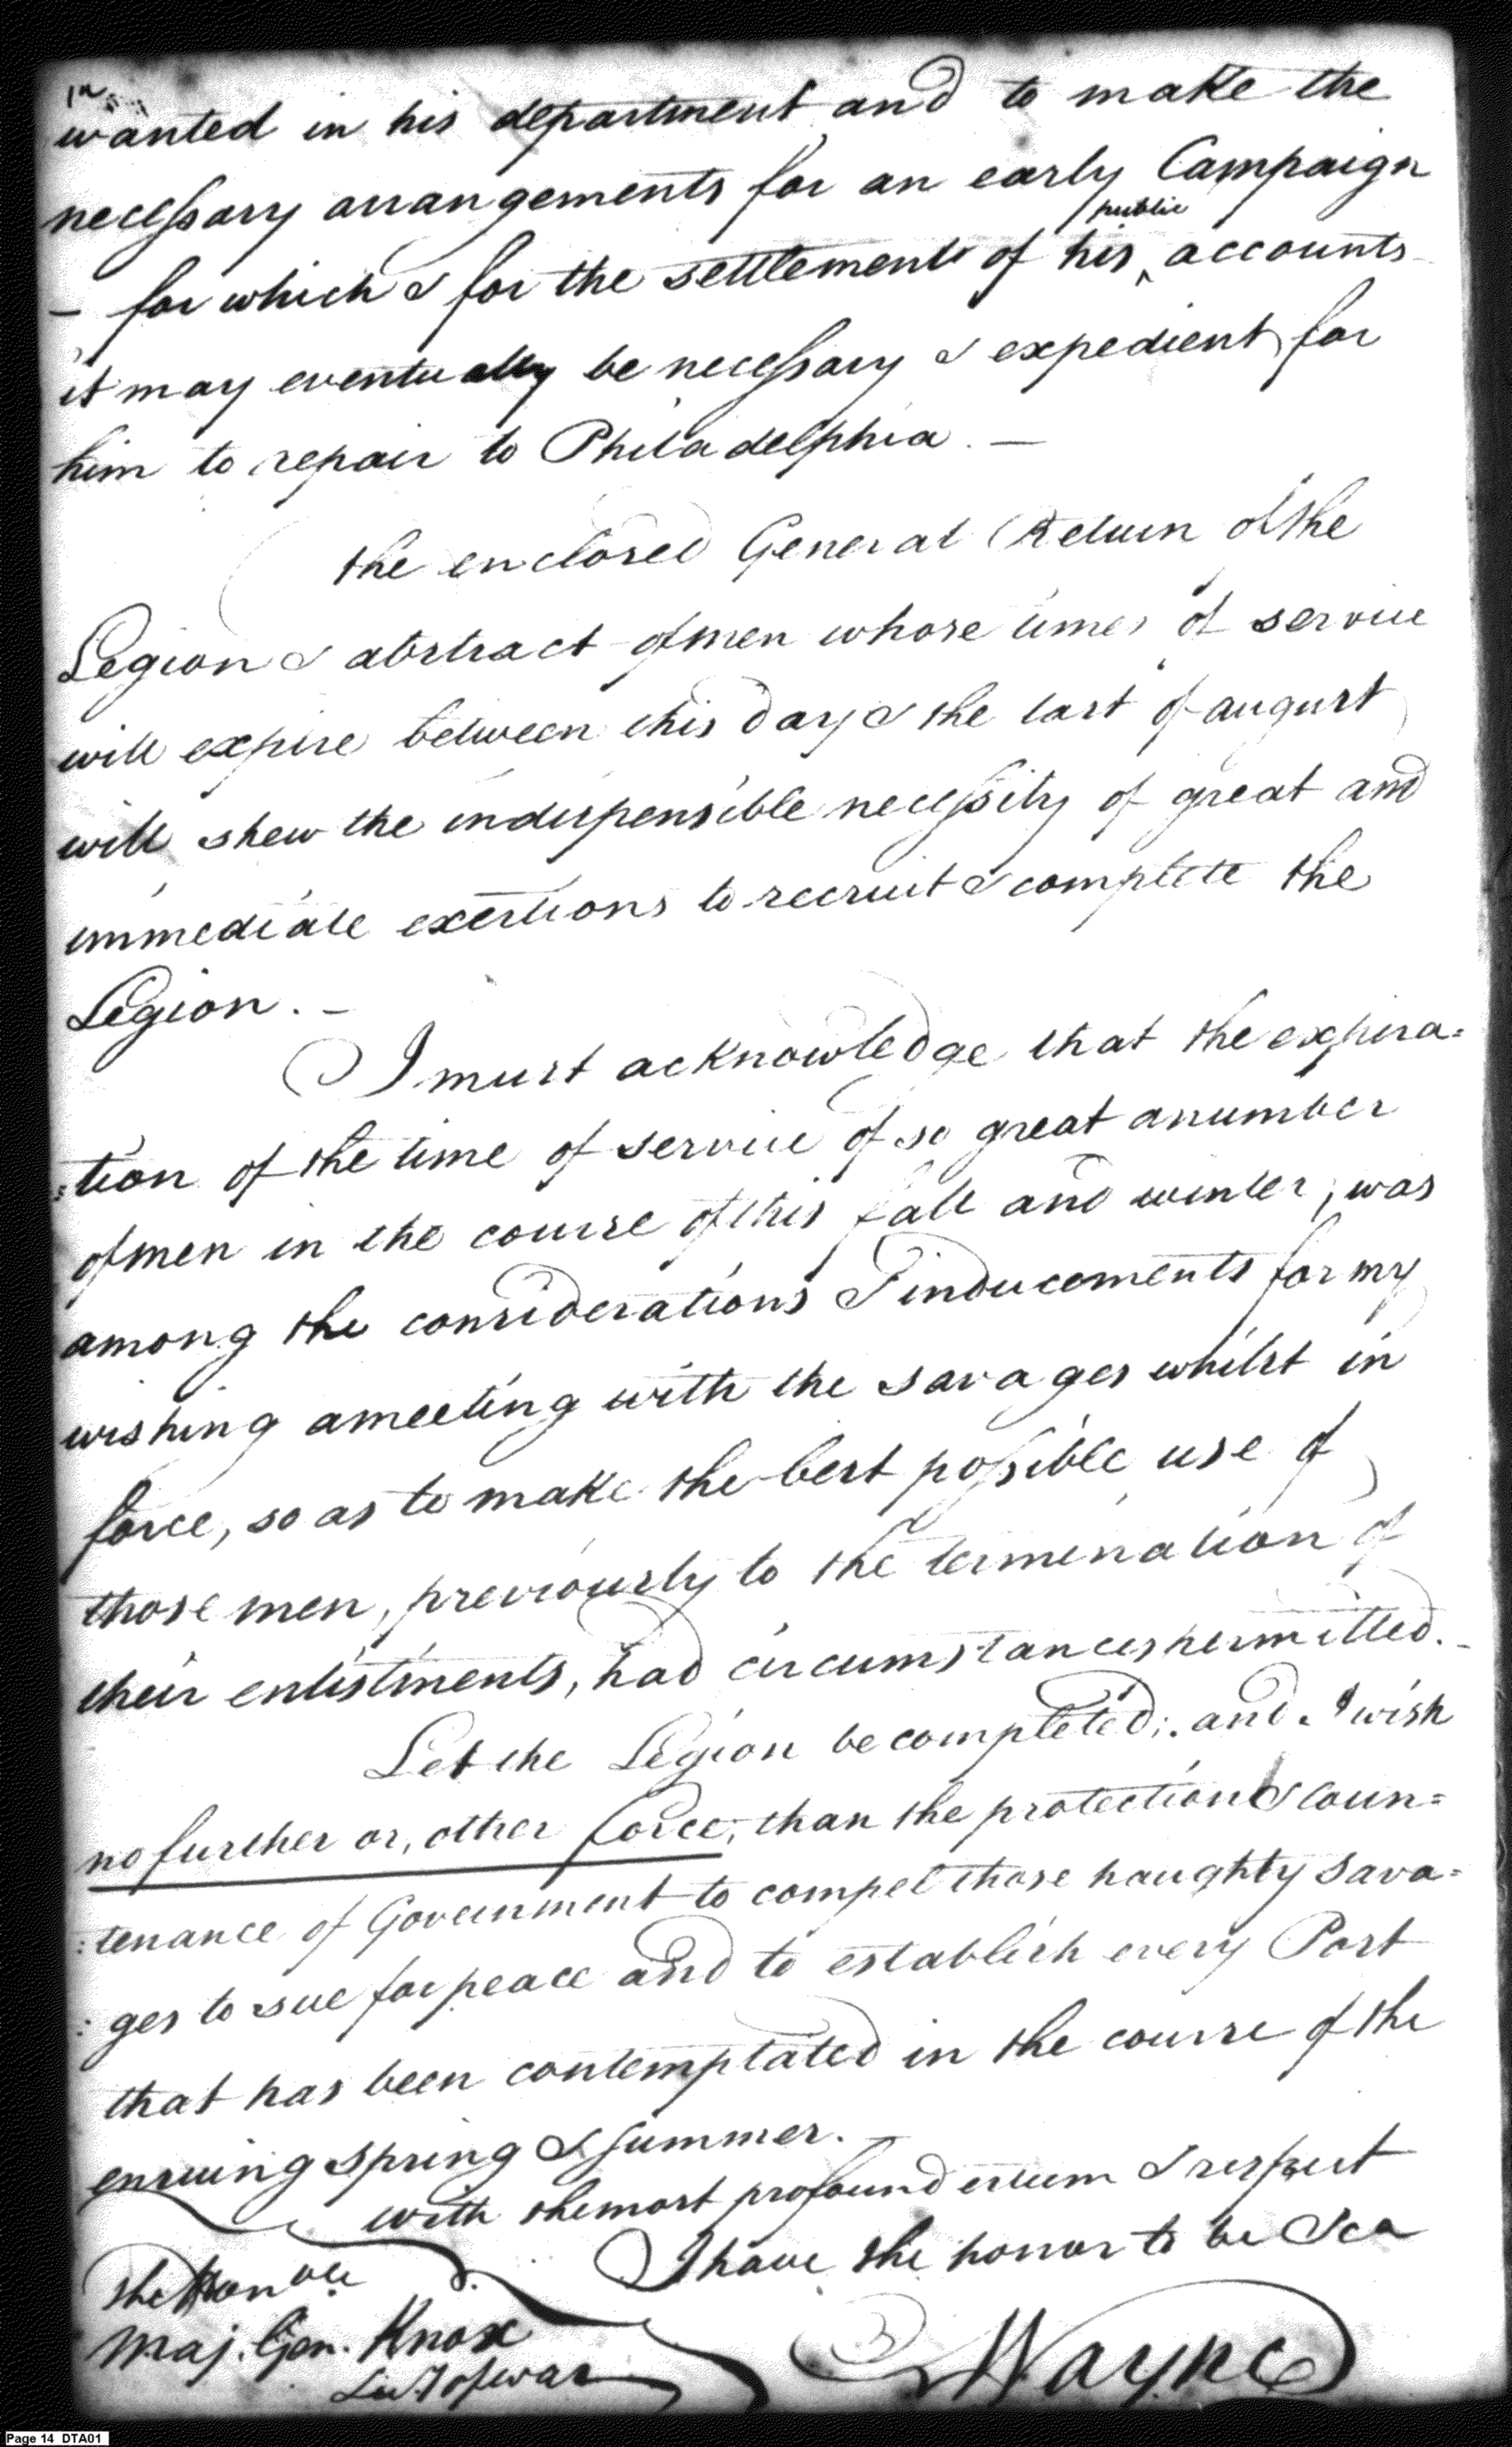 wanted in his department and to make the
necessary arrangements for an early Campaign
public
— for which & for the settlement of his ^ accounts
it may eventually be necessary & expedient for
him to repair to Philadelphia. —
the enclosed General Return of the
Legion & abstract of men whose times of service
will expire between this day & the last of august
will shew the indispensible necessity of great and
immediate exertions to recruit & complete the
Legion. —
I must acknowledge that the expira=
=tion of the time of service of so great a number
of men in the course of this fall and winter, was
among the considerations & inducements for my
wishing a meeting with the savages whilst in
force, so as to make the best possible use of
those men, previously to the termination of
their enlistments, had circumstances permitted. -
Let the Legion be completed; and I wish
no further or, other force, than the protection & coun=
=tenance of Government to compel those haughty sava=
=ges to sue for peace and to establish every Post
that has been contemplated in the course of the
ensuing spring & summer. —
with the most profound esteem & respect
I have the honor to be &ca
The Honble
Maj. Gen. Knox
Secy of war
Wayne
Page 14 DTA01